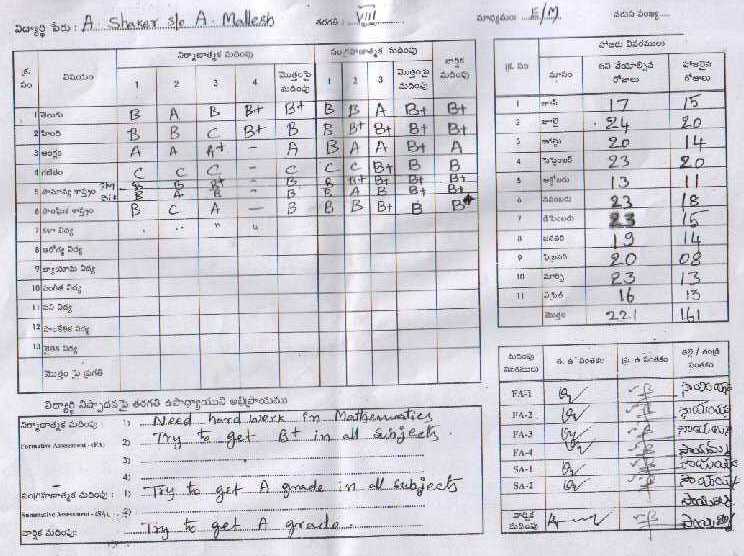 విద్యార్థి పేరు: A Shaker s/o A. Mallesh తరగతి: VIII మాధ్యమం: E/M వరుస సంఖ్య
నిర్మాణాత్మక మదింపు సంగ్రహణాత్మక మదింపు
క్ర. సం విషయం 1 2 3 4 మొత్తంపై మదింపు 1 2 3 మొత్తంపై మదింపు వార్షిక మదింపు
1 తెలుగు B A B B+ B+ B B A B+ B+
2 హింది B B C B+ B B B+ B+ B+ B+
3 ఆంగ్లం A A A+ - A B A A B+ A
4 గణితం C C C - C C C B+ B B
5 సామాన్య శాస్త్రం B B B+ - B B B+ B+ B+ B+
B A B - B B A B B+ B+
6 సాంఘిక శాస్త్రం B C A - B B B B+ B B+
7 కళా విద్య
8 ఆరోగ్య విద్య
9 వ్యాయామ విద్య
10 సంగీత విద్య
11 పని విద్య
12 విద్య
13 నైతిక విద్య
మొత్తం పై ప్రగతి
హాజరు వివరములు
క్ర. సం మాసం పని చేయాల్సిన రోజులు హాజరైన రోజులు
1 జూన్ 17 15
2 జూలై 24 20
3 ఆగస్టు 20 14
4 సెప్టెంబర్ 23 20
5 అక్టోబరు 13 11
6 నవంబరు 23 18
7 డిసెంబరు 23 15
8 జనవరి 19 14
9 ఫిబ్రవరి 20 08
10 మార్చి 23 13
11 ఏప్రిల్ 16 13
మొత్తం 221 161
విద్యార్థి నిష్పాదనపై తరగతి ఉపాధ్యాయుని అభిప్రాయము
నిర్మాణాత్మక మదింపు 1) Need hard work in Mathematics
Formative Assessment - (FA) 2) Try to get B+ in all subjects.
3)
4)
సంగ్రహణాత్మక మదింపు : 1) Try to get A grade in all subjects
Summative Assessment - (SA) 2)
వార్షిక మదింపు: Try to get A grade
మదింపు త. ఉ సంతకం ప్ర. ఉ సంతకం తల్లి / తండ్రి సంతకం
FA-1
FA-2
FA-3
FA-4
SA-1
SA-2
వార్షిక మదింపు